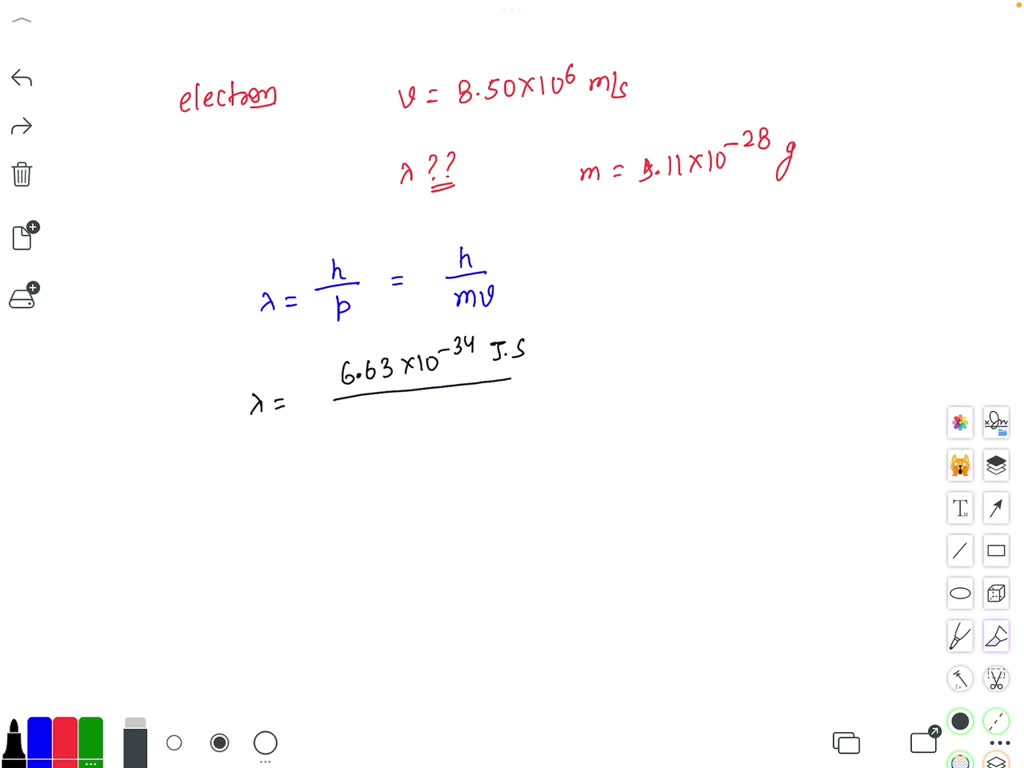 electron v = 8.50×10⁶ m/s
λ ?? m = 9.11×10⁻²⁸ g
λ = h/p = h/mv
λ = 6.63×10⁻³⁴ J.S
T